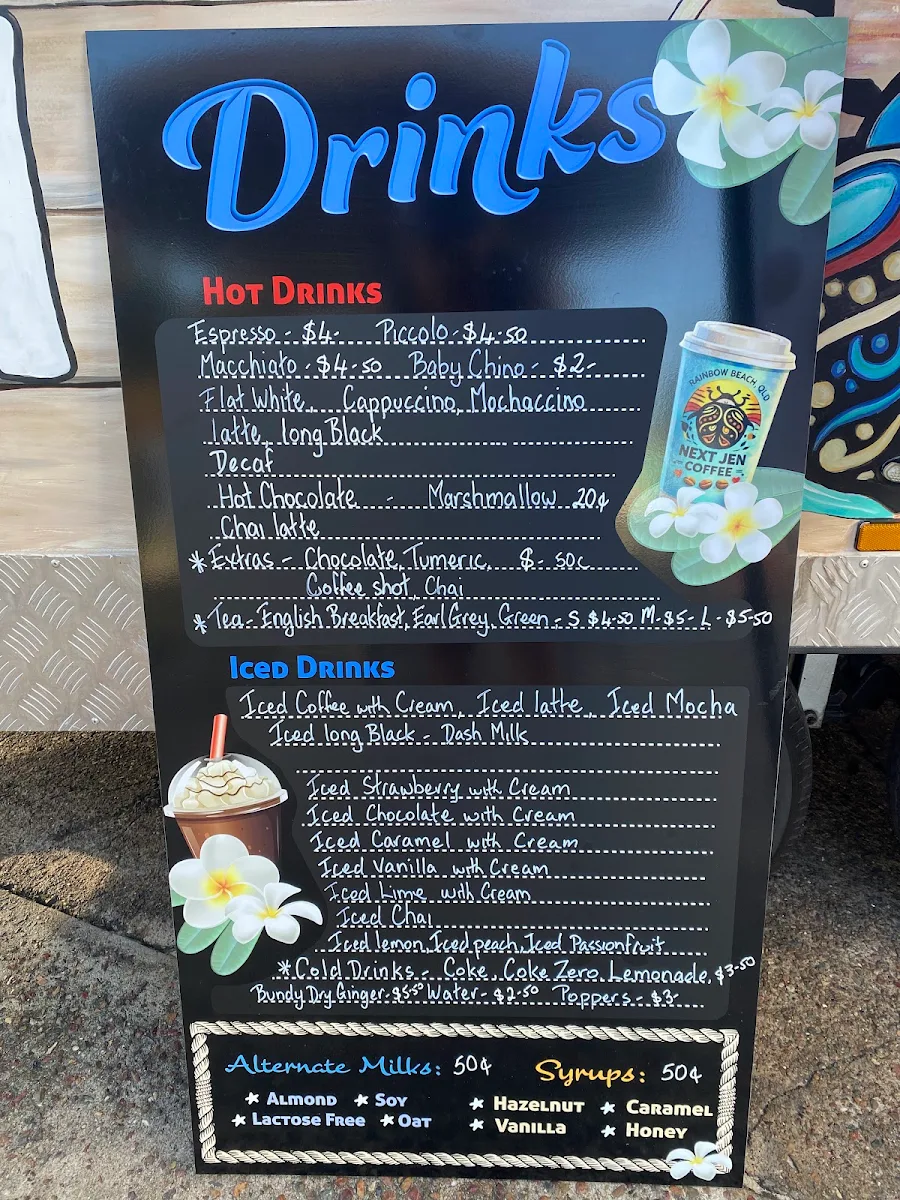 Drinks
HOT DRINKS
Espresso - $4- Piccolo - $4-50
Macchiato - $4-50 Baby Chino - $2-
Flat White, Cappuccino, Mochaccino
latte, long Black
Decaf
Hot Chocolate - Marshmallow 20¢
Chai latte
* Extras - Chocolate, Tumeric, $- 50c
Coffee shot, Chai
* Tea - English Breakfast, Earl Grey, Green - S $4-50 M-$5- L-$5-50
RAINBOW BEACH, QLD
NEXT JEN
COFFEE
ICED DRINKS
Iced Coffee with Cream, Iced latte, Iced Mocha
Iced long Black - Dash Milk
Iced Strawberry with Cream
Iced Chocolate with Cream
Iced Caramel with Cream
Iced Vanilla with Cream
Iced Lime with Cream
Iced Chai
Iced lemon, Iced peach, Iced Passionfruit
* Cold Drinks - Coke, Coke Zero, Lemonade, $3-50
Bundy Dry Ginger - $5-50 Water - $2-50 Poppers - $3-
Alternate Milks: 50¢ Syrups: 50¢
★ ALMOND ★ SOY ★ HAZELNUT ★ CARAMEL
★ LACTOSE FREE ★ OAT ★ VANILLA ★ HONEY